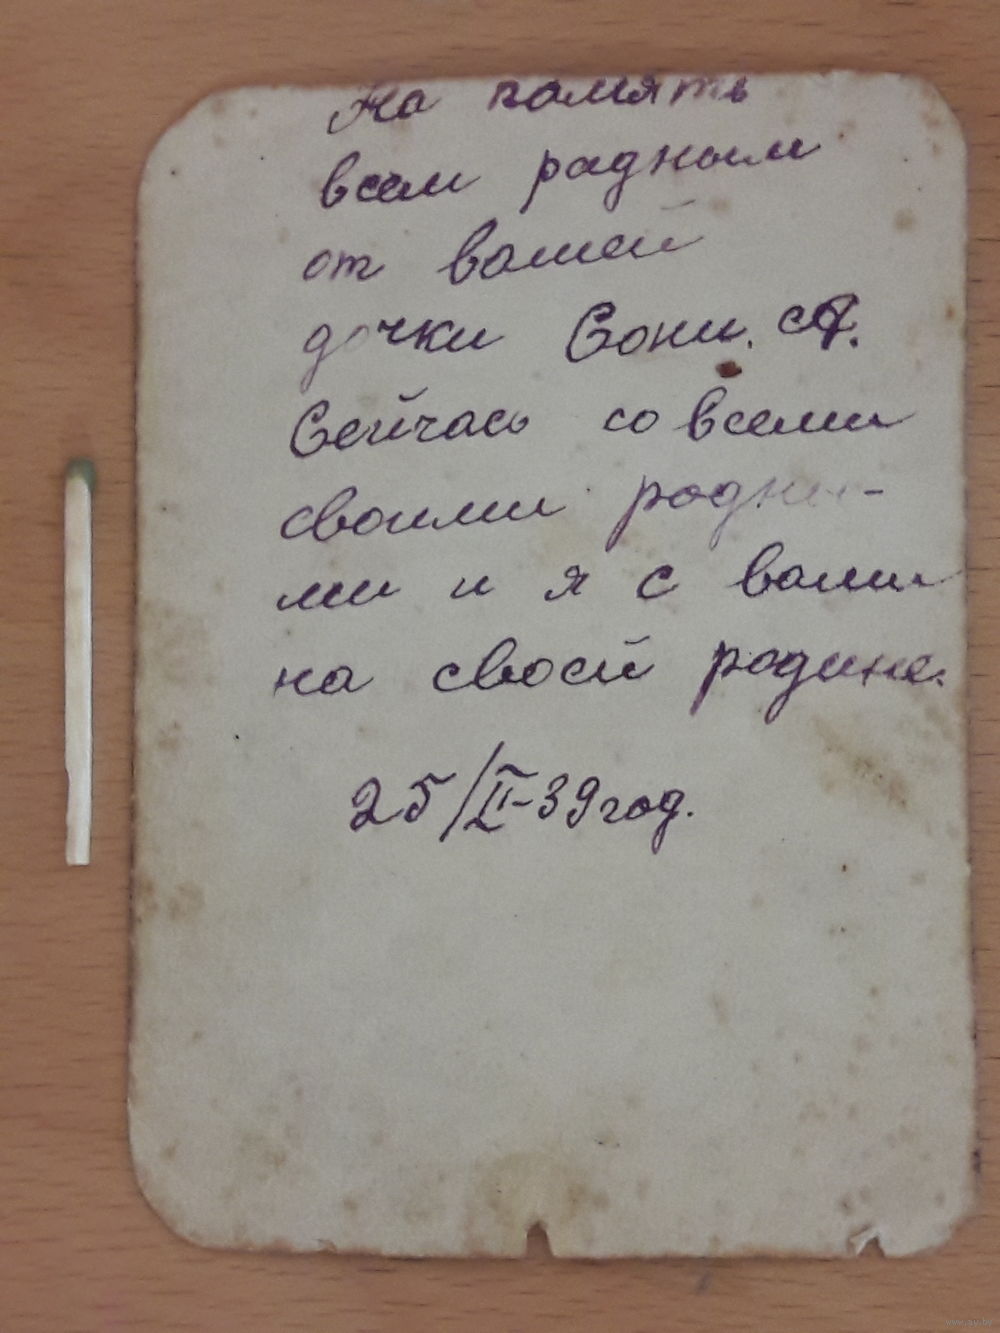 На память
всем радным
от вашей
дочки Сони.
Сейчась со всеми
своими родны-
ми и я с вами
на своей родине.
25/II-39 год.
www.ay.by